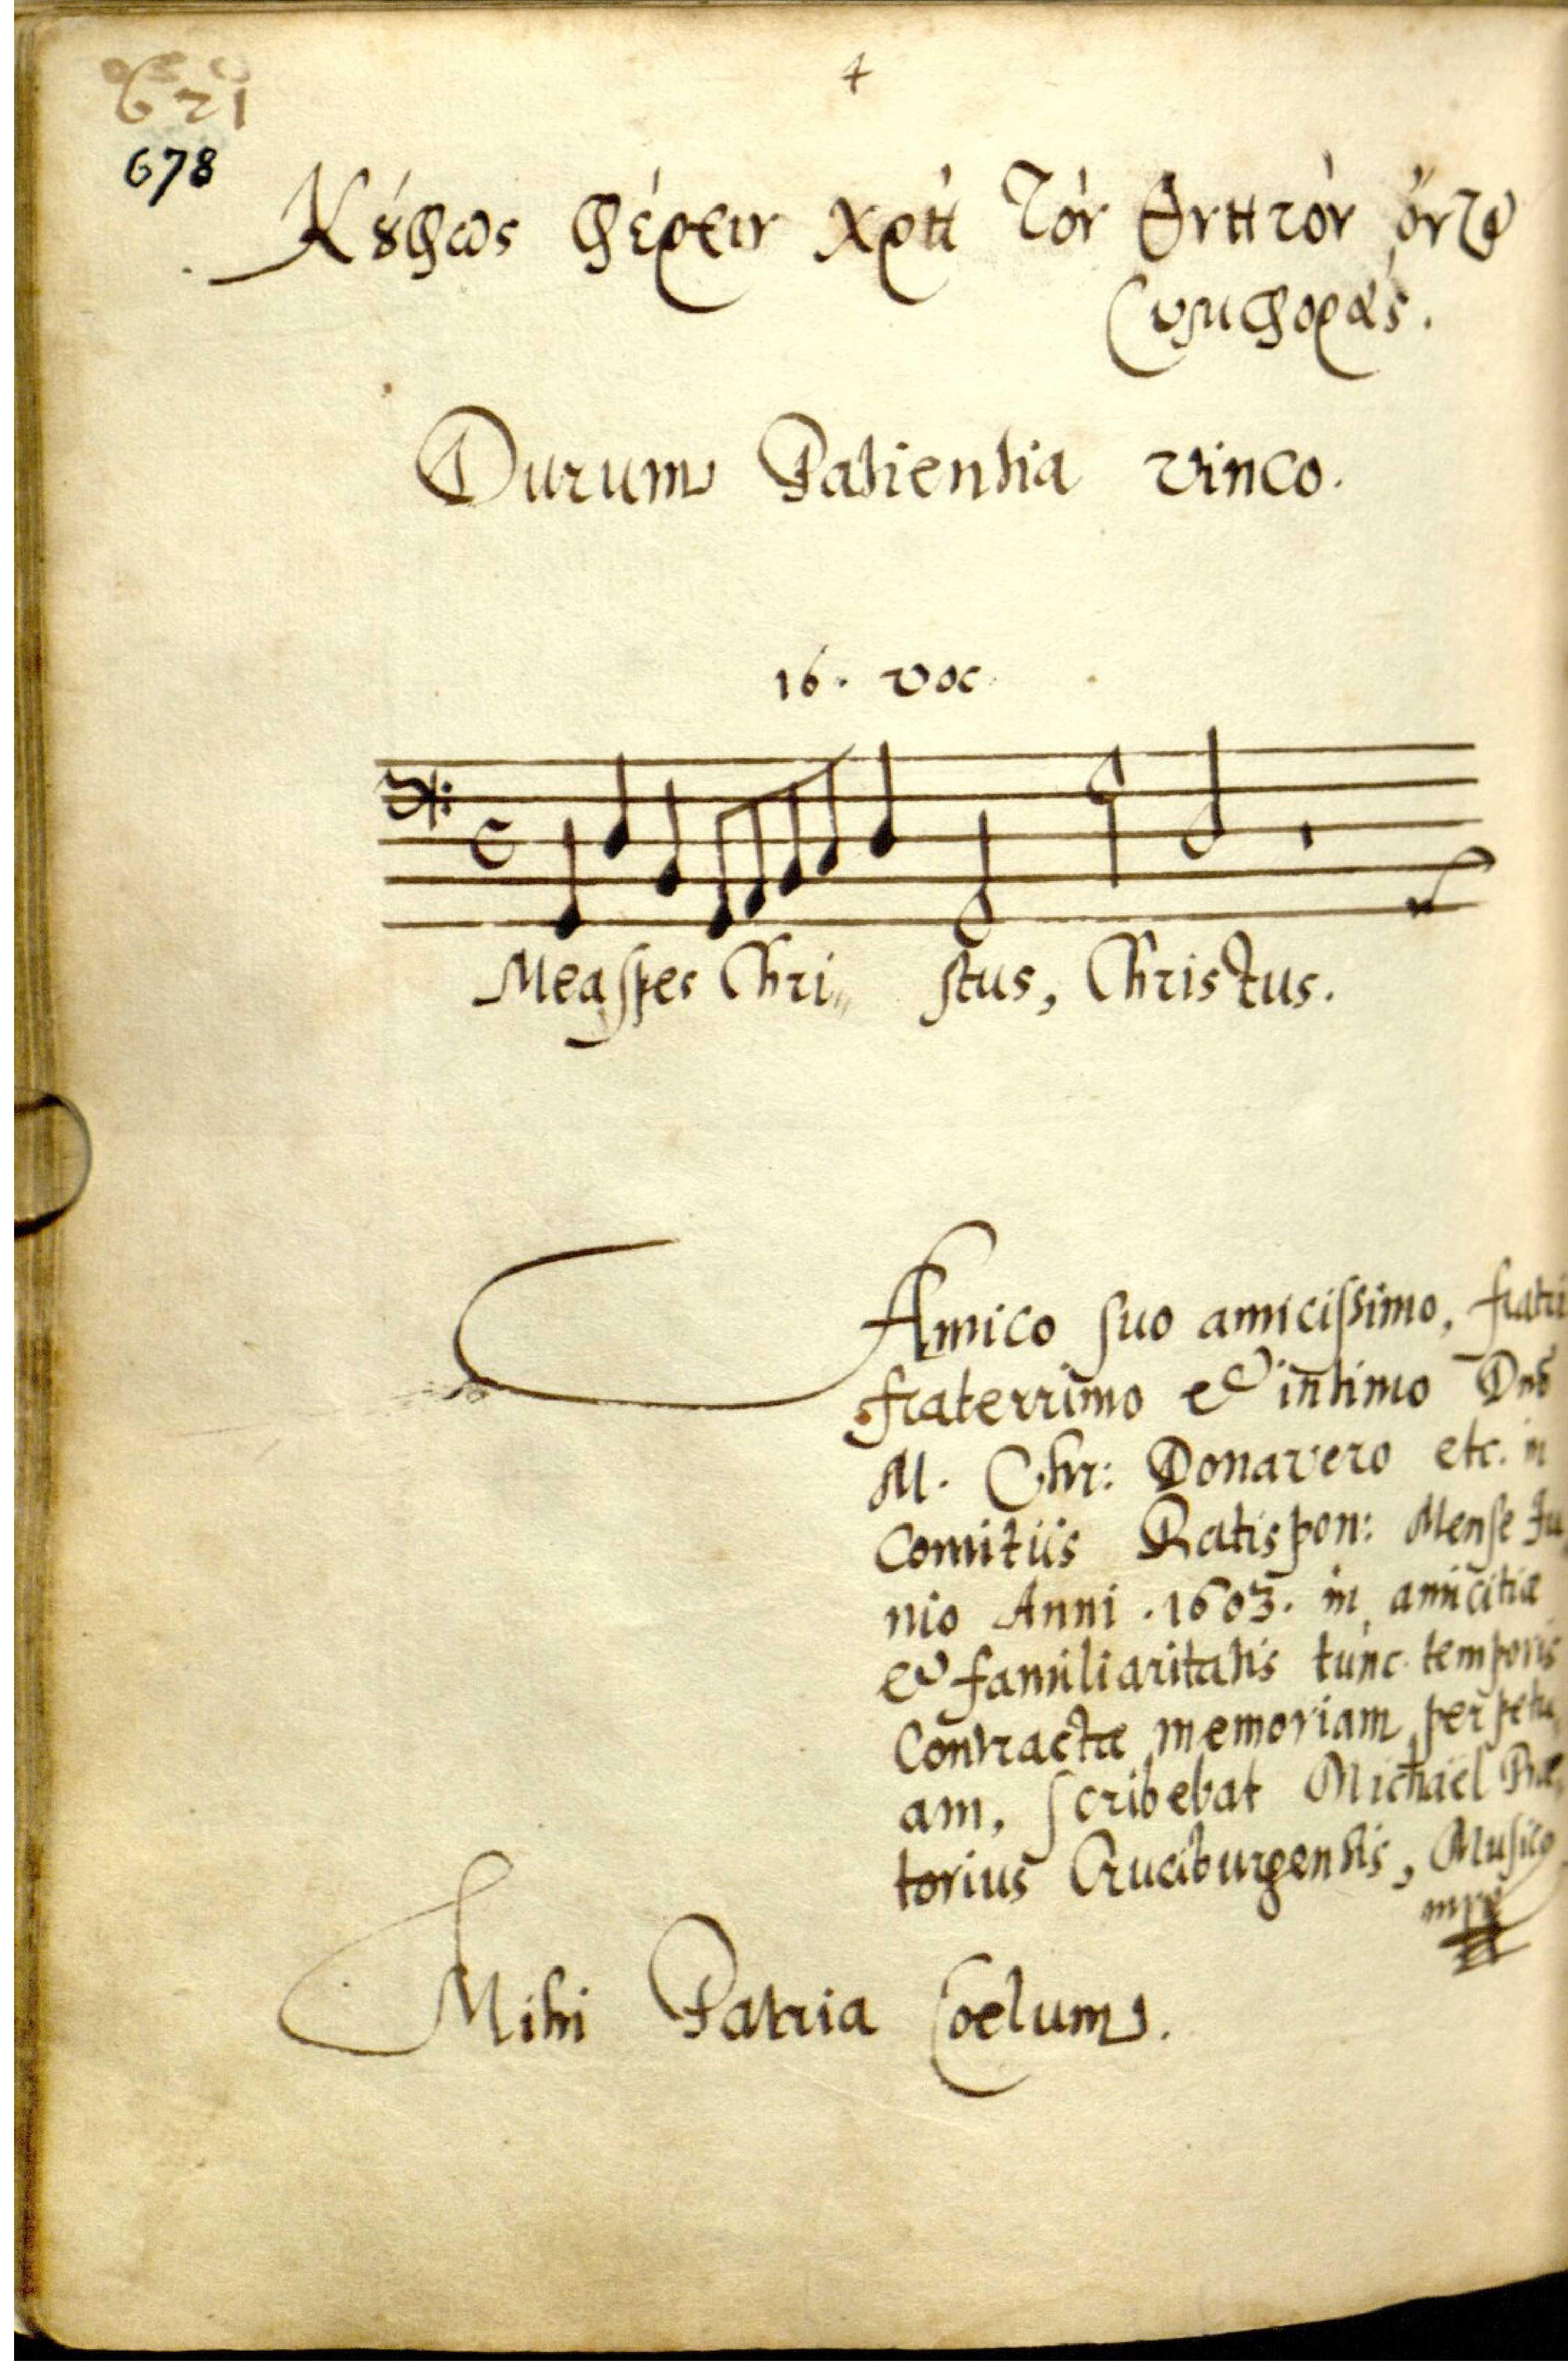 4
621
678
Κȣ́φως φέρειν χρὴ τὸν θνητὸν ὄντα
συμφοράς.
Durum Patientia vinco.
16. voc
Mea ſpes Chri„ ſtus, Christus.
Amico ſuo amiciſsimo, fratri
fraterrimo et intimo Dnō
M. Chr: Donavero etc. in
Comitiis Ratispon: Menſe Iu
nio Anni .1603. in amicitiæ
et familiaritatis tunc temporis
Contractæ memoriam perpetu
am, ſcribebat Michaël Præ
torius Cruciburgensis, Musicꝯ
mpr
Mihi Patria Coelum.